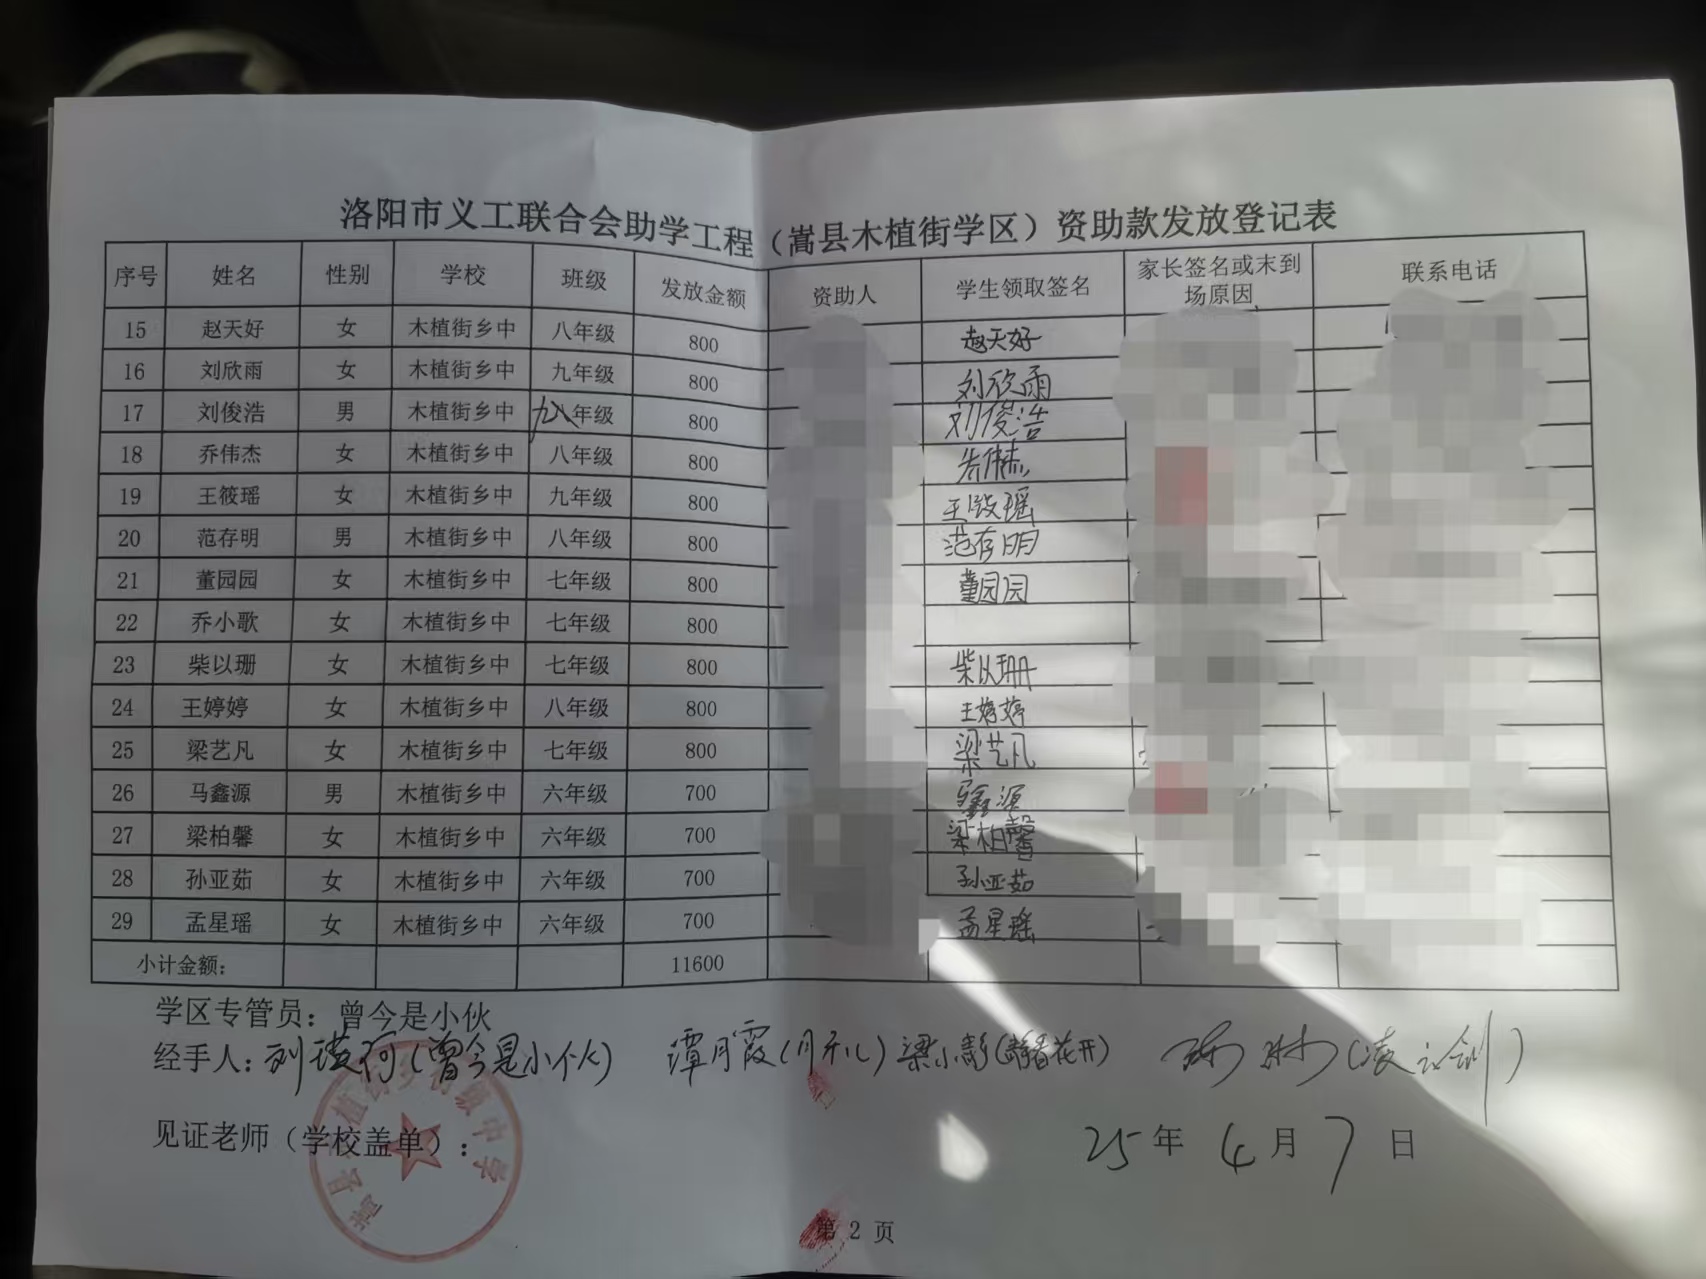 洛阳市义工联合会助学工程（嵩县木植街学区）资助款发放登记表
序号 姓名 性别 学校 班级 发放金额 资助人 学生领取签名 家长签名或未到场原因 联系电话
15 赵天好 女 木植街乡中 八年级 800 赵天好
16 刘欣雨 女 木植街乡中 九年级 800 刘欣雨
17 刘俊浩 男 木植街乡中 九年级 800 刘俊浩
18 乔伟杰 女 木植街乡中 八年级 800 乔伟杰
19 王筱瑶 女 木植街乡中 九年级 800 王筱瑶
20 范存明 男 木植街乡中 八年级 800 范存明
21 董园园 女 木植街乡中 七年级 800 董园园
22 乔小歌 女 木植街乡中 七年级 800
23 柴以珊 女 木植街乡中 七年级 800 柴以珊
24 王婷婷 女 木植街乡中 八年级 800 王婷婷
25 梁艺凡 女 木植街乡中 七年级 800 梁艺凡
26 马鑫源 男 木植街乡中 六年级 700 马鑫源
27 梁柏馨 女 木植街乡中 六年级 700 梁柏馨
28 孙亚茹 女 木植街乡中 六年级 700 孙亚茹
29 孟星瑶 女 木植街乡中 六年级 700 孟星瑶
小计金额： 11600
学区专管员：曾今是小伙
经手人：刘瑛(曾今是小伙) 谭月霞(月牙儿) 梁小静(静看花开) (凌云剑)
见证老师（学校盖单）：
25年4月7日
嵩县木植街乡初级中学
第 2 页